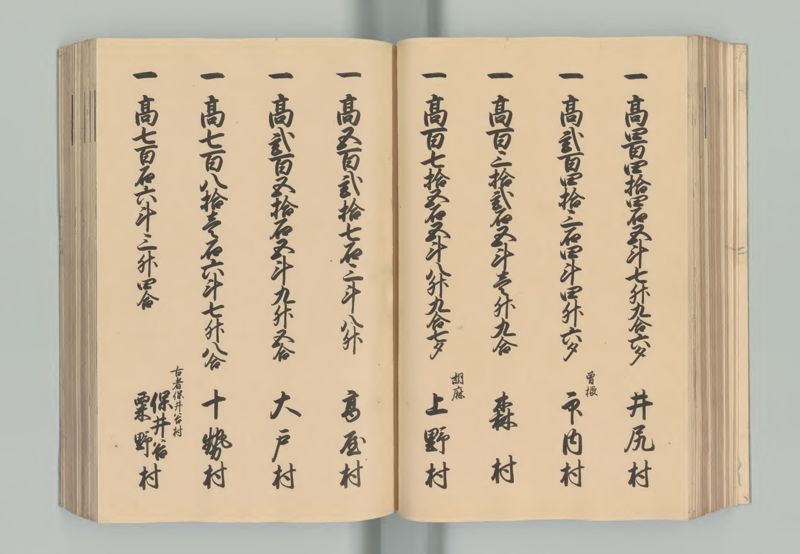 一高四百四拾四石五斗七升九合六夕 井尻村
一高弐百四拾三石四斗四升六夕 曽根 市内村
一高百三拾弐石五斗壱升九合 森村
一高百七拾五石五斗八升九合七夕 胡麻 上野村
一高五百弐拾七石三斗八升 高屋村
一高弐百五拾石五斗九升五合 大戸村
一高七百八拾壱石六斗七升八合 十勢村
一高七百石六斗三升四合 古者保井谷村 保井谷 粟野村